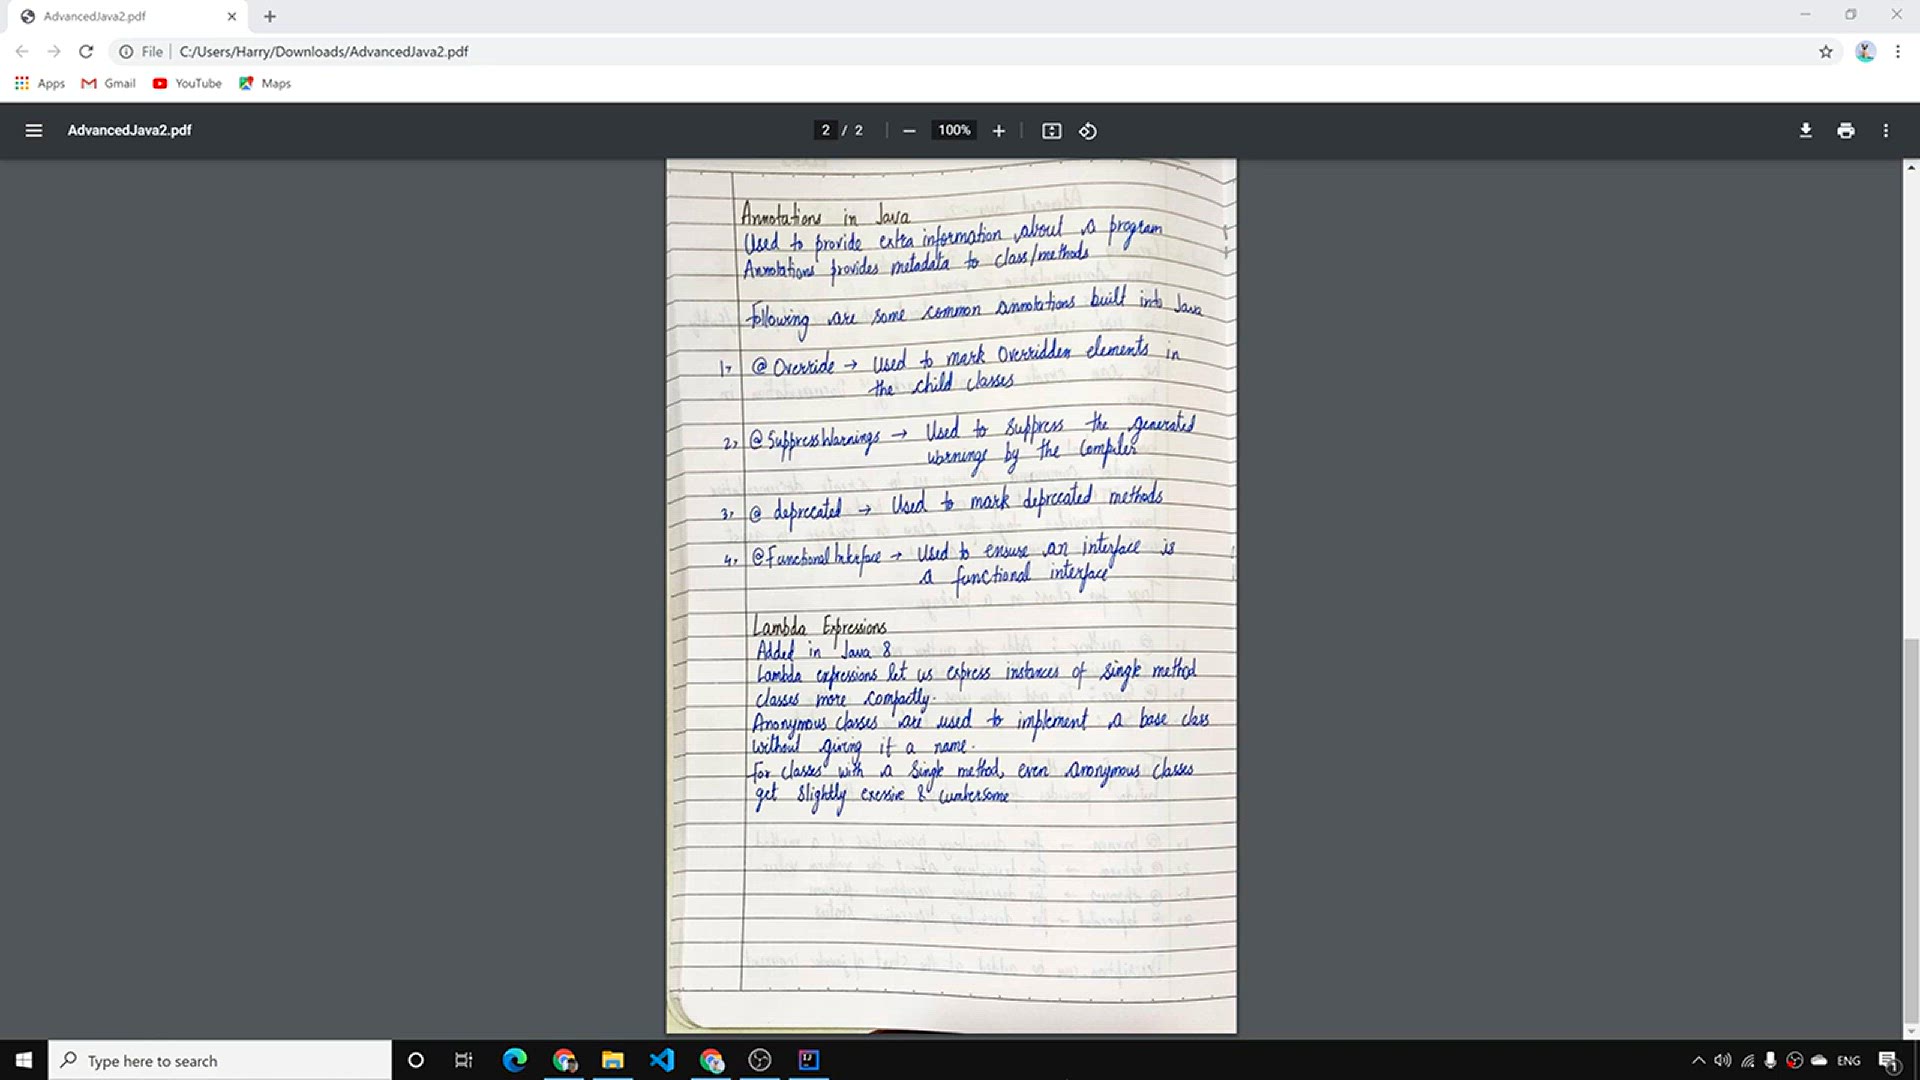 AdvancedJava2.pdf
File | C:/Users/Harry/Downloads/AdvancedJava2.pdf
Apps Gmail YouTube Maps
AdvancedJava2.pdf 2 / 2 — 100% +
Annotations in Java
Used to provide extra information about a program
Annotations provides metadata to class/methods
Following are some common annotations built into Java
1, @ Override → Used to mark Overridden elements in
the child classes
2, @ SuppressWarnings → Used to suppress the generated
warnings by the Compiler
3, @ deprecated → Used to mark deprecated methods
4, @ Functional Interface → Used to ensure an interface is
a functional interface
Lambda Expressions
Added in Java 8
Lambda expressions let us express instances of single method
classes more compactly.
Anonymous classes are used to implement a base class
without giving it a name.
For classes with a single method, even anonymous classes
get slightly exessive & cumbersome
Type here to search
ENG